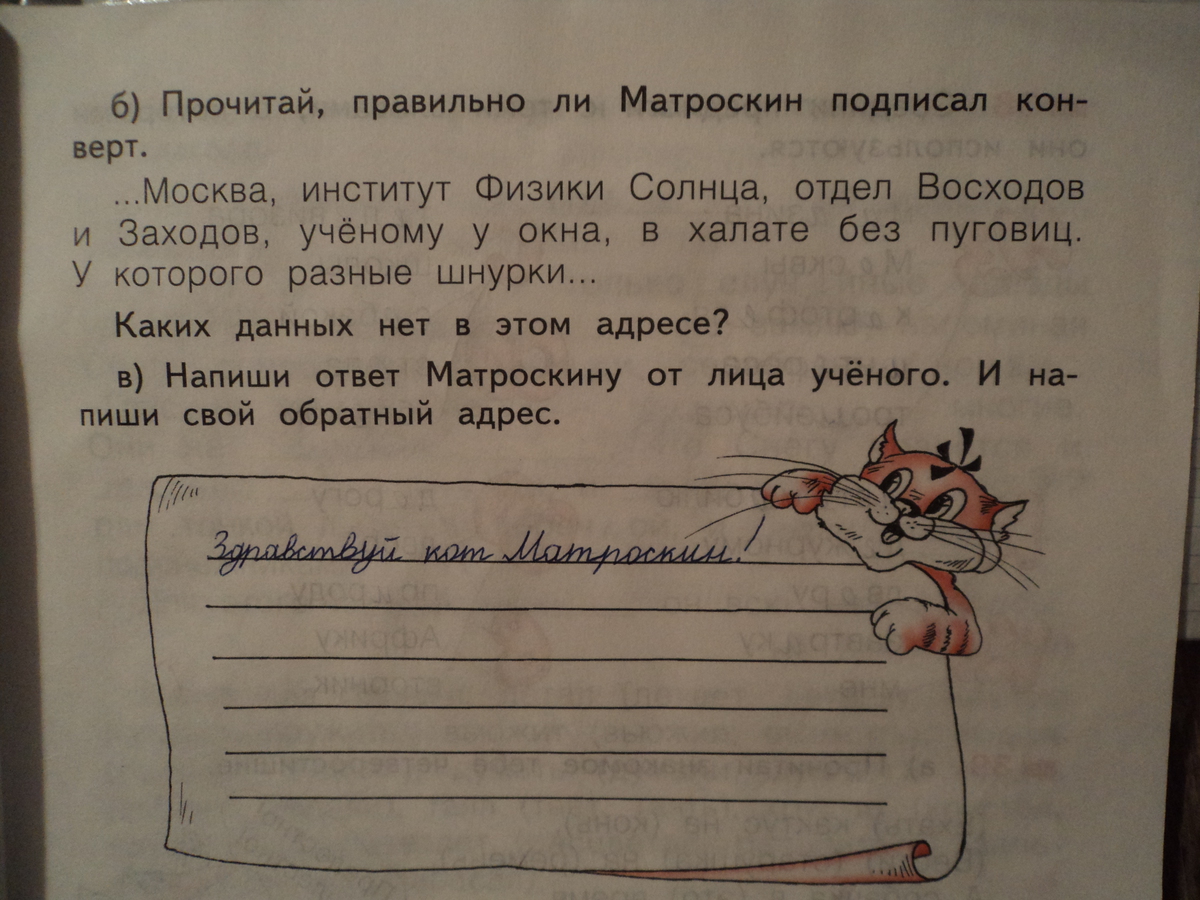 б) Прочитай, правильно ли Матроскин подписал кон-
верт.
...Москва, институт Физики Солнца, отдел Восходов
и Заходов, учёному у окна, в халате без пуговиц.
У которого разные шнурки...
Каких данных нет в этом адресе?
в) Напиши ответ Матроскину от лица учёного. И на-
пиши свой обратный адрес.
Здравствуй кот Матроскин!